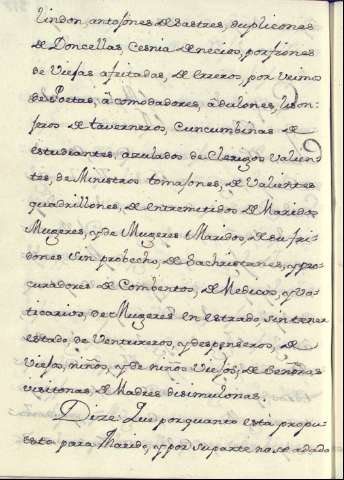 lindon, antojones de Sastres, duplicones
de Doncellas, Cesnia de necios, porfiones
de Viejas afeitadas, de Cueros, por Veinos
de Poetas, acomodadores, adulones, lison-
jeros de taverneros, Cuncumbinas de
estudiantes, azulados de Clerigos Valien-
tes, de Ministros tomajones, de Valientes
quadrillones, de entremetidos de Maridos
Mugeres, y de Mugeres Maridos, de sufri-
dones sin probecho, de Sachristanes, y pro-
curadores de Combentos, de Medicos, y Vo-
ticarios, de Mugeres en estrado, sin tener
estado, de Ventureros, y despenseros, de
Viejos, niños, y de niños Viejos; de Señoras
visitonas, de Madres disimulonas.
Dize: Que por quanto está propu-
esta para Marido, y por su parte no se ad